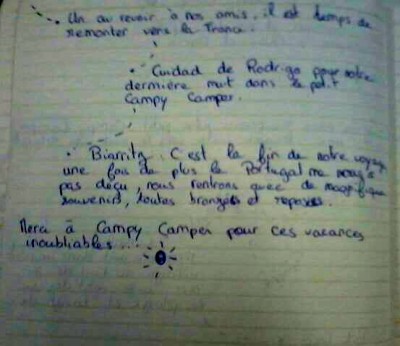 . Un au revoir à nos amis, il est temps de
remonter vers la France.
. Cuidad de Rodrigo pour notre
dernière nuit dans le petit
Campy Camper.
. Biarritz. C'est la fin de notre voyage
une fois de plus le Portugal ne nous a
pas déçu, nous rentrons avec de magnifique
souvenirs, toutes bronzées et reposées.
Merci à Campy Camper pour ces vacances
inoubliables...